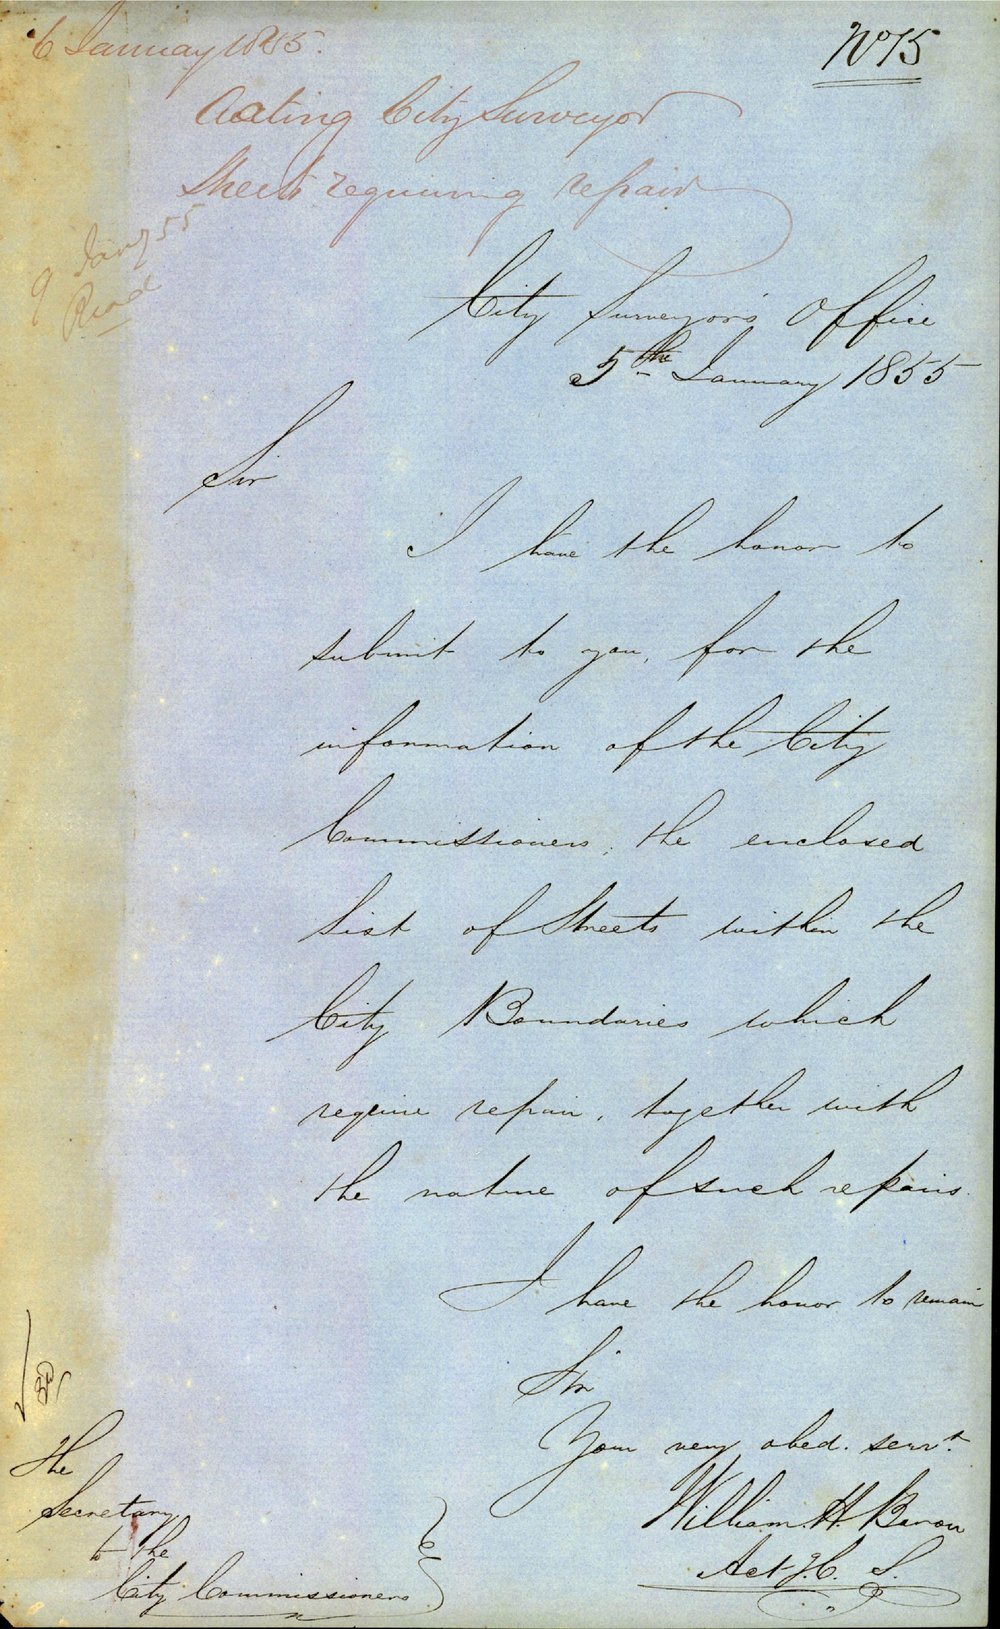 6 January 1855.
No 15
Acting City Surveyor
Streets requiring repair
9 Jany 55
Read
City Surveyor's Office
5th January 1855
Sir
I have the honor to
submit to you, for the
information of the City
Commissioners, the enclosed
List of Streets within the
City Boundaries which
require repair, together with
the nature of such repairs.
I have the honor to remain
Sir
Your very obed. servt.
William. H. Baron
Actg. C. S.
The
Secretary
to the
City Commissioners